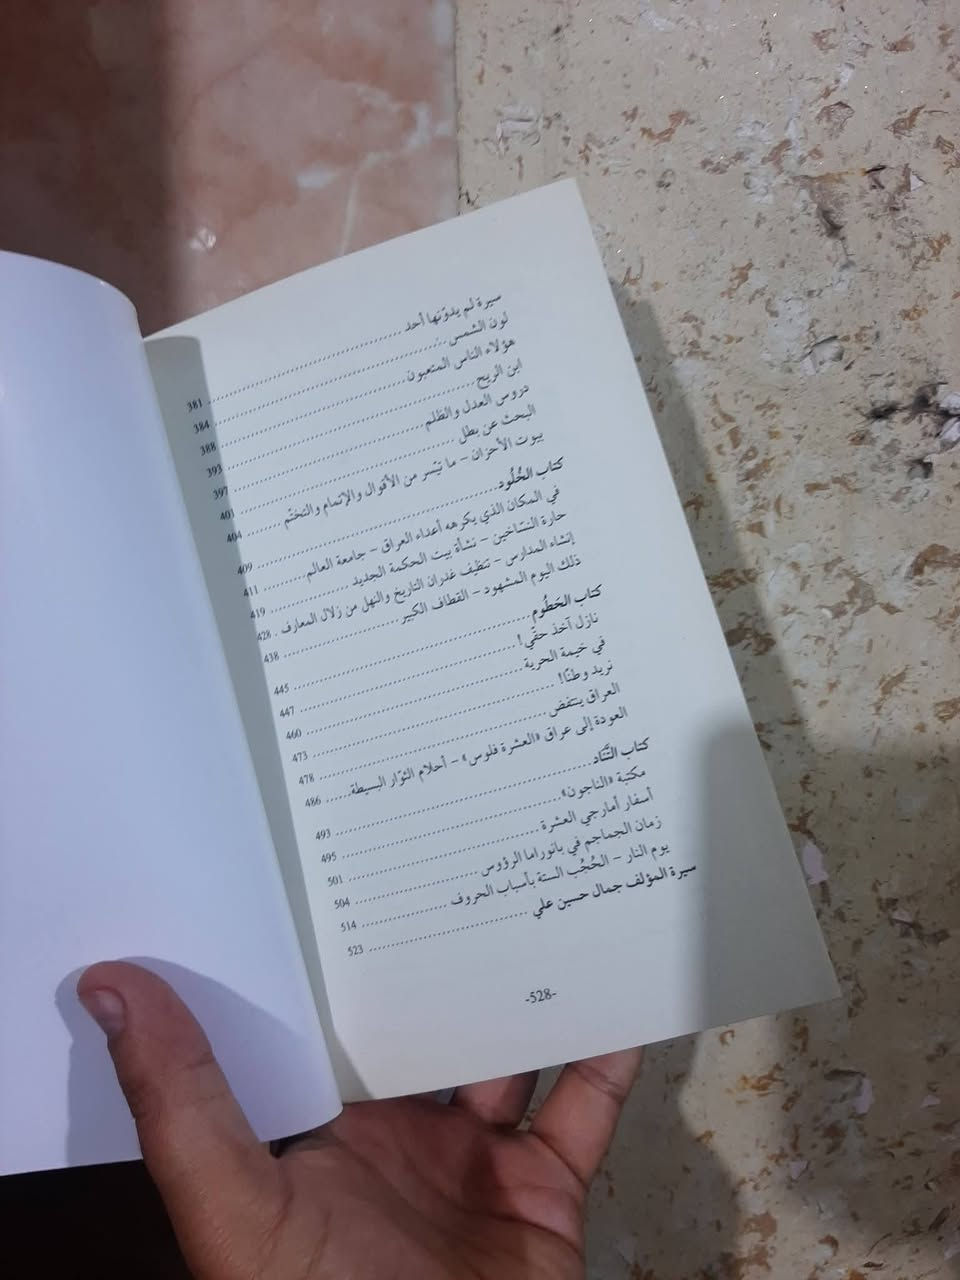 سيرة لم يدوّنها أحد ........ 381
لون الشمس ........ 384
هؤلاء الناس المتعبون ........ 388
ابن الريح ........ 393
دروس العدل والظلم ........ 397
البحث عن بطل ........ 401
بيوت الأحزان – ما تيسّر من الأقوال والإتمام والتختّم ........ 404
كتاب الخُلُود ........ 409
في المكان الذي يكرهه أعداء العراق – جامعة العالم ........ 411
حارة النسّاخين – نشأة بيت الحكمة الجديد ........ 419
إنشاء المدارس – تنظيف غدران التاريخ والنهل من زلال المعارف . 428
ذلك اليوم المشهود – القطاف الكبير ........ 438
كتاب الحَطُوم ........ 445
نازل آخذ حقّي! ........ 447
في خيمة الحرية ........ 460
نريد وطنًا! ........ 473
العراق ينتفض ........ 478
العودة إلى عراق «العشرة فلوس» – أحلام الثوّار البسيطة ........ 486
كتاب التَّنَاد ........ 493
مكتبة «الناجون» ........ 495
أسفار أمارجي العشرة ........ 501
زمان الجماجم في بانوراما الرؤوس ........ 504
يوم النار – الحُجُب الستة بأسباب الحروف ........ 514
سيرة المؤلف جمال حسين علي ........ 523
-528-